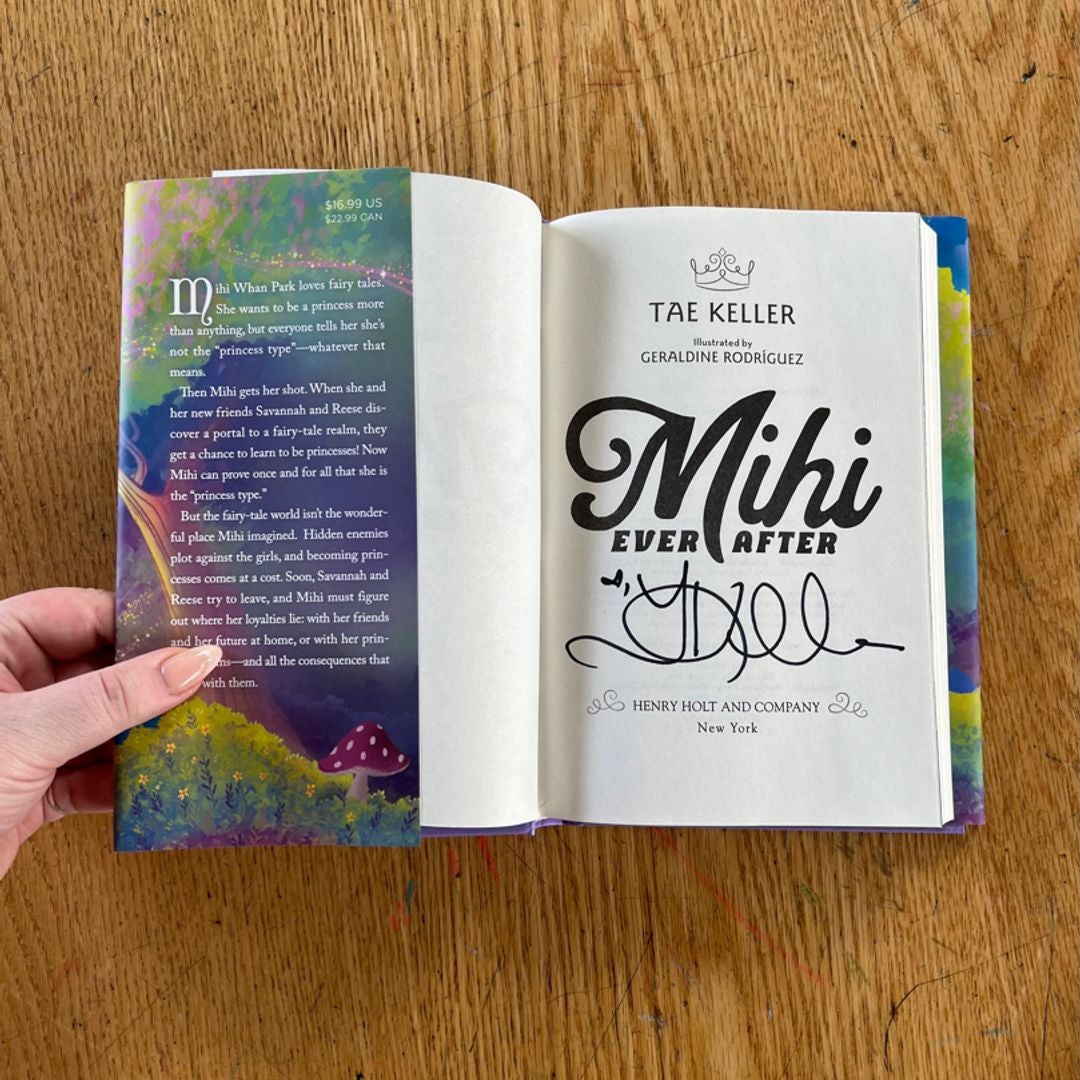 $16.99 US
$22.99 CAN
Mihi Whan Park loves fairy tales.
She wants to be a princess more
than anything, but everyone tells her she's
not the "princess type"—whatever that
means.
Then Mihi gets her shot. When she and
her new friends Savannah and Reese dis-
cover a portal to a fairy-tale realm, they
get a chance to learn to be princesses! Now
Mihi can prove once and for all that she is
the "princess type."
But the fairy-tale world isn't the wonder-
ful place Mihi imagined. Hidden enemies
plot against the girls, and becoming prin-
cesses comes at a cost. Soon, Savannah and
Reese try to leave, and Mihi must figure
out where her loyalties lie: with her friends
and her future at home, or with her prin-
—and all the consequences that
with them.
TAE KELLER
Illustrated by
GERALDINE RODRÍGUEZ
Mihi
EVER AFTER
HENRY HOLT AND COMPANY
New York